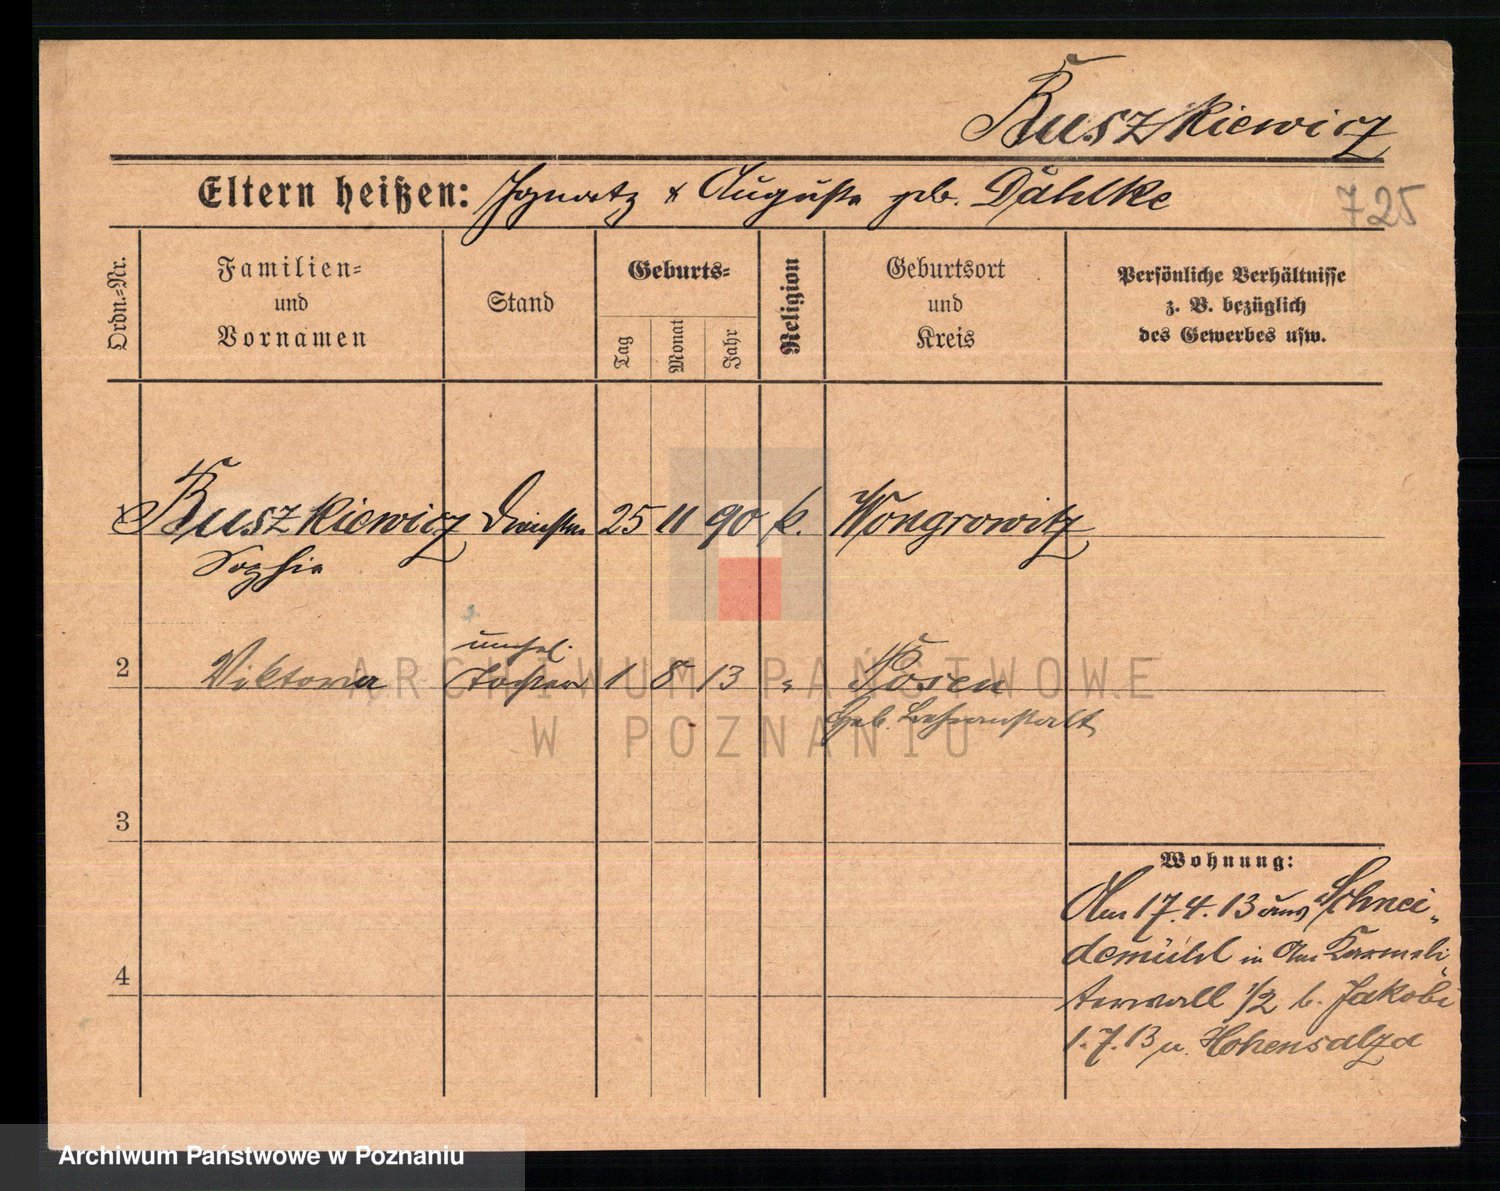 Ruszkiewicz
Eltern heißen: Ignatz & Auguste geb. Dählke
725
Ordn.=Nr.
Familien=
und
Vornamen
Stand
Geburts=
Tag
Monat
Jahr
Religion
Geburtsort
und
Kreis
Persönliche Verhältnisse
z. B. bezüglich
des Gewerbes usw.
1 Ruszkiewicz 25 11 90 k. Wongrowitz
Sophie
unehel.
2 Viktoria Tochter 1 8 13 " Posen
Geb. Lehranstalt
3
4
Wohnung:
Am 17.4.13 aus Schnei-
demühl in Am Karmeli
terwall 1/2 b. Jakobi
1.7.13 n. Hohensalza
ARCHIWUM PAŃSTWOWE
W POZNANIU
Archiwum Państwowe w Poznaniu